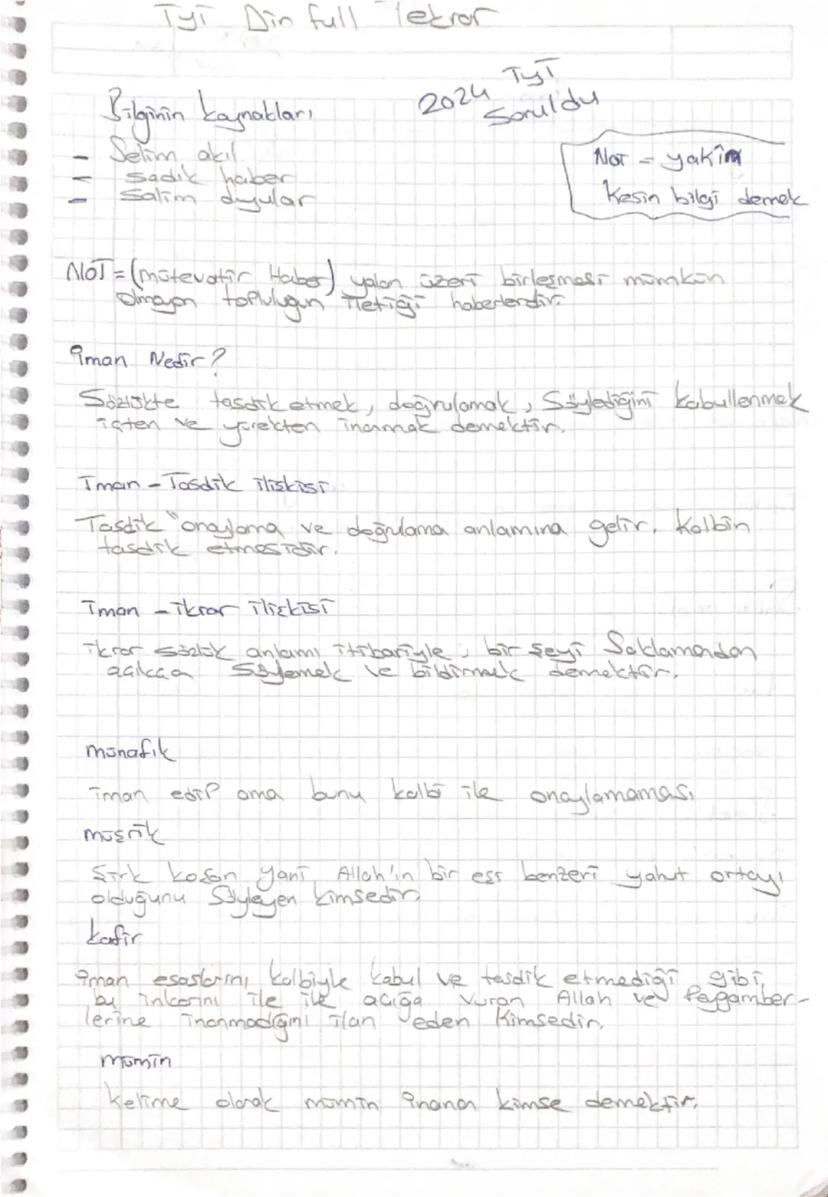 TYT Din full Tekrar
2024 TYT
Soruldu
Bilginin kaynakları
- Selim akıl
- sadık haber
- Salim duyular
Not = yakîn
Kesin bilgi demek
NOT = (mütevatir Haber) yalan üzeri birleşmesi mümkün
olmayan topluluğun ilettiği haberlerdir.
iman Nedir?
Sözlükte tasdik etmek, doğrulamak, Söylediğini kabullenmek
içten ve yürekten inanmak demektir.
İman - Tasdik ilişkisi
Tasdik "onaylama ve doğrulama anlamına gelir. Kalbin
tasdik etmesidir.
iman - ikrar ilişkisi
ikrar sözlük anlamı itibariyle, bir şeyi Saklamadan
açıkça Söylemek ve bildirmek demektir.
münafık
iman edip ama bunu kalbi ile onaylamaması
müşrik
Şirk koşan yani Allah'ın bir eşi benzeri yahut ortağı
olduğunu Söyleyen kimsedir
kafir
iman esaslarını kalbiyle kabul ve tasdik etmediği gibi,
bu inkarını ile açığa vuran Allah ve Peygamber-
lerine inanmadığını ilan eden Kimsedir.
mümin
Kelime olarak mümin inanan kimse demektir.